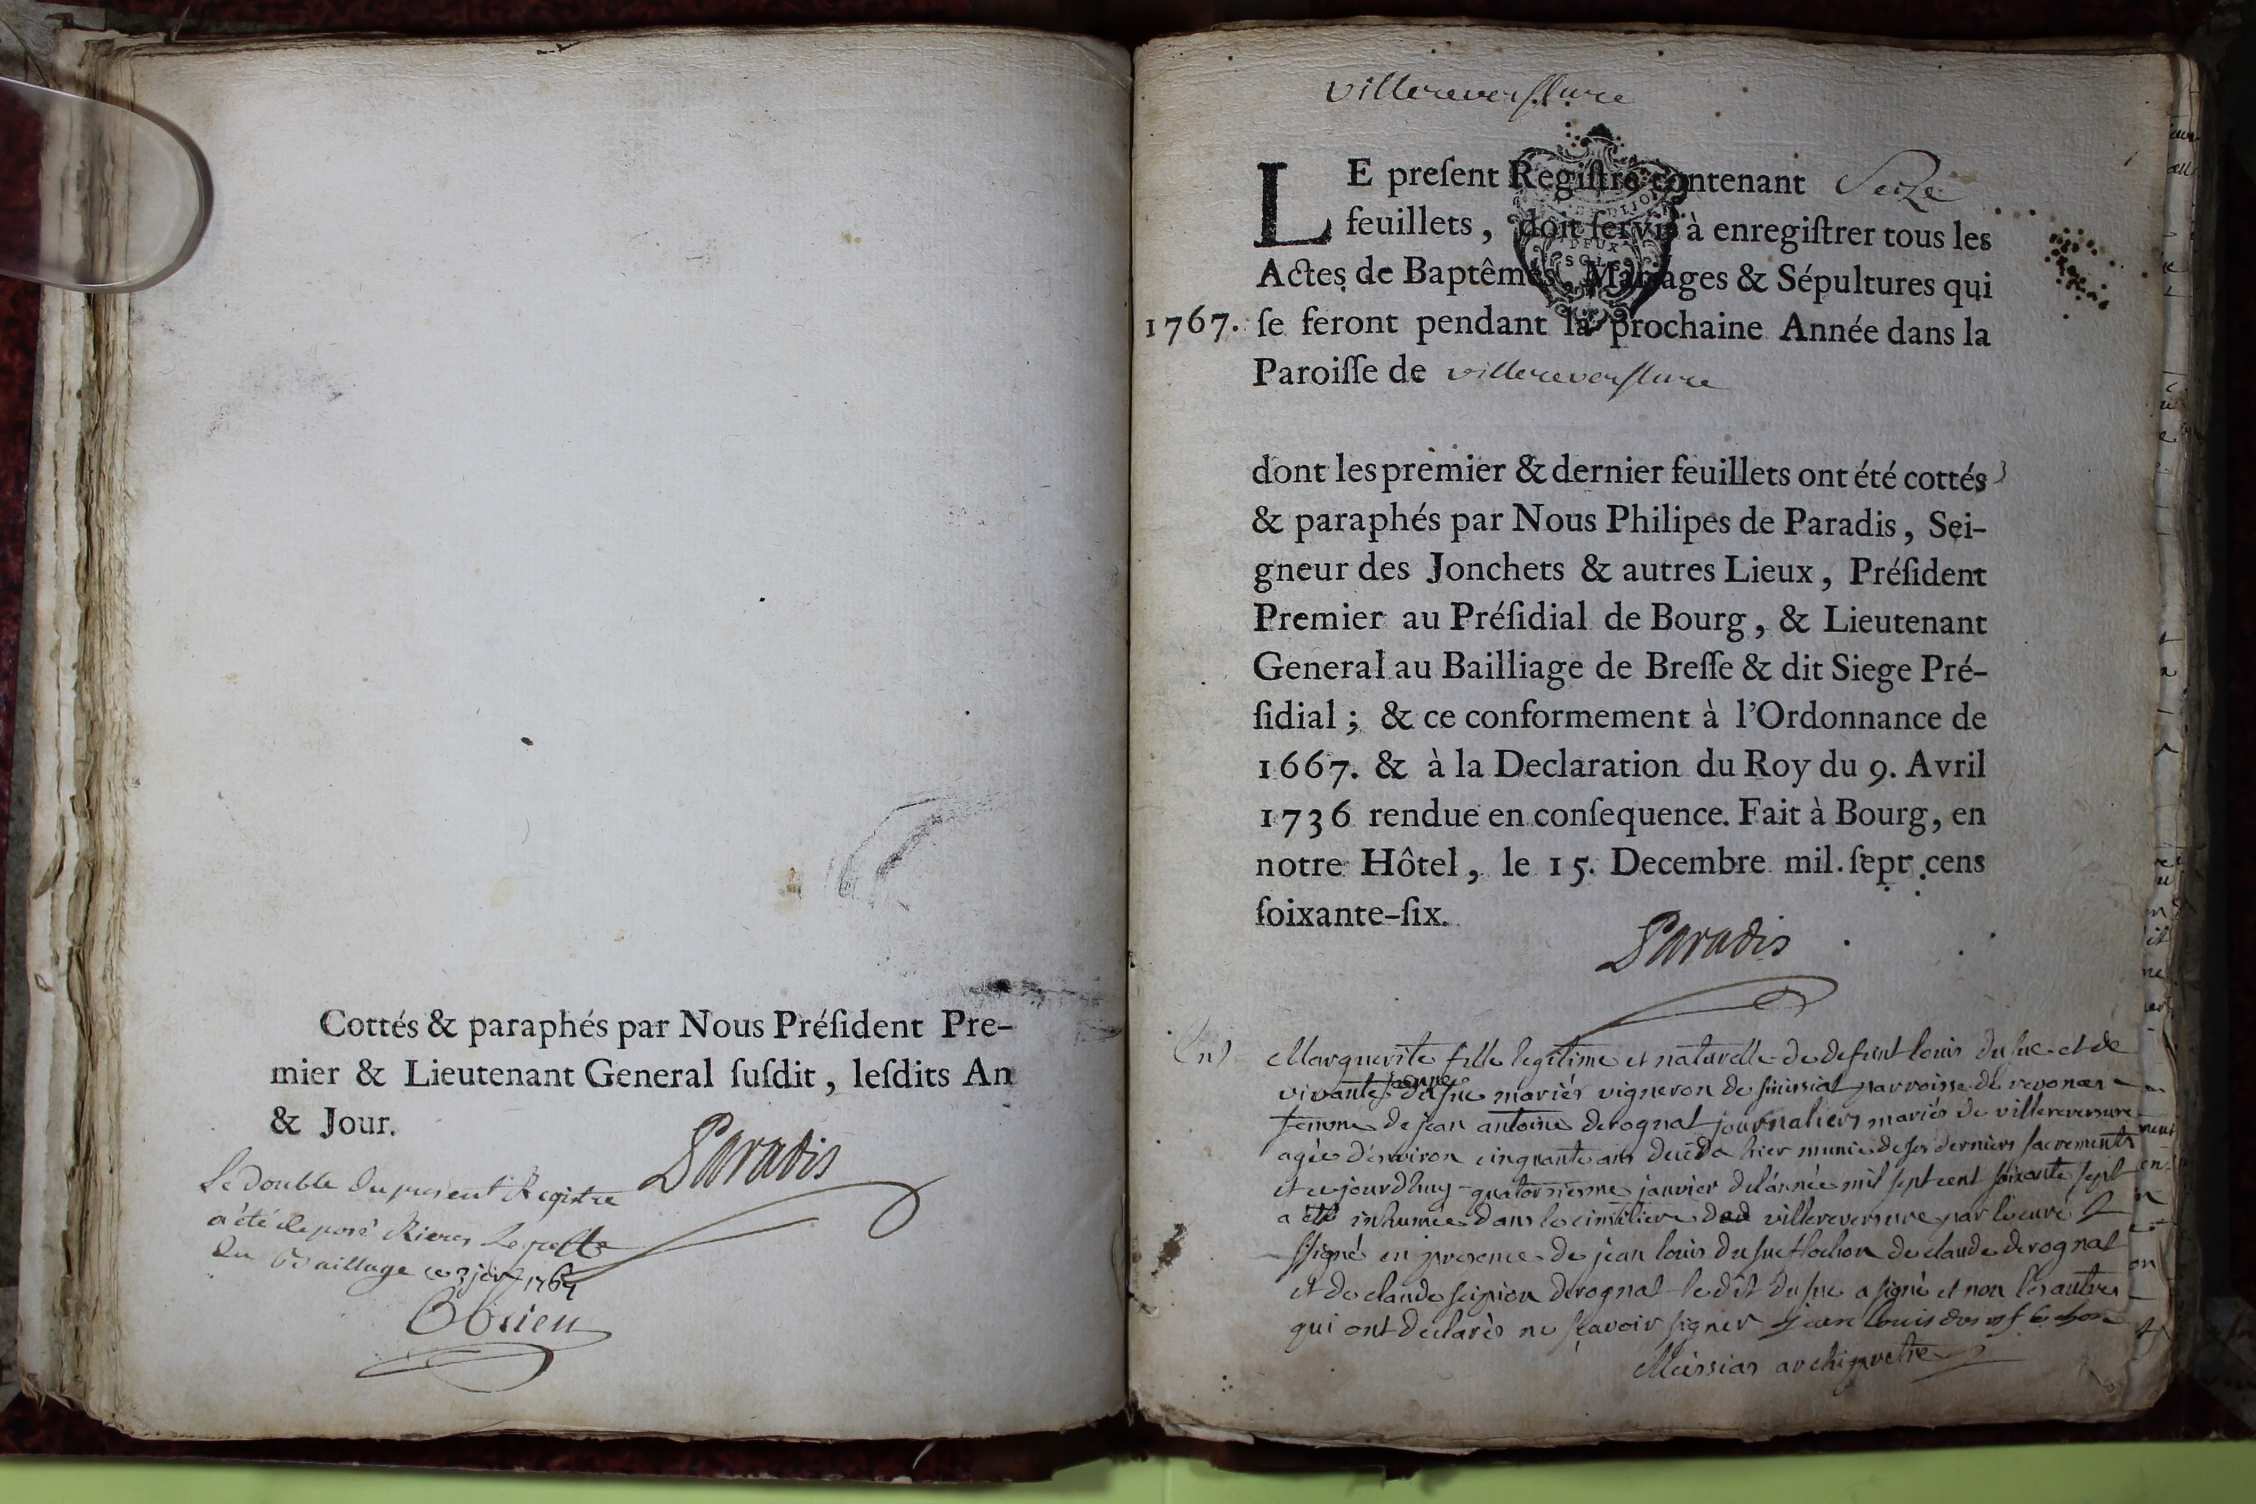 Cottés & paraphés par Nous Préſident Pre-
mier & Lieutenant General ſuſdit, leſdits An
& Jour.
Paradis
Le double du present Registre
a été deposé Rieres Le greffe
du Bailliage ce 3 jer 1767
villereverſſure
LE preſent Regiſtre contenant Seize
feuillets, doit ſervir à enregiſtrer tous les
Actes de Baptêmes, Mariages & Sépultures qui
1767. ſe feront pendant la prochaine Année dans la
Paroiſſe de villereverſſure
dont les premier & dernier feuillets ont été cottés
& paraphés par Nous Philipes de Paradis, Sei-
gneur des Jonchets & autres Lieux, Préſident
Premier au Préſidial de Bourg, & Lieutenant
General au Bailliage de Breſſe & dit Siege Pré-
ſidial; & ce conformement à l'Ordonnance de
1667. & à la Declaration du Roy du 9. Avril
1736 rendue en conſequence. Fait à Bourg, en
notre Hôtel, le 15. Decembre mil. ſept cens
ſoixante-ſix.
Paradis
Marguerite fille legitime et naturelle de defunt louis du suc et de
vivante jeanne du suc mariés vigneron de parroisse de revonas
femme de jean antoine derognat journaliers mariés de villereversure
agée d'environ cinquante ans hier munie de ses derniers sacrements
et ce jourdhuy quatorsieme janvier de l'année mil sept cent soixante sept
a été inhumée dans le cimitiere de villereversure par le curé
ssigné en presence de jean louis du suc de claude derognat
et de claude scipion derognat le dit du suc a signé et non les autres
qui ont declarés ne sçavoir signer jean louis
archipretre